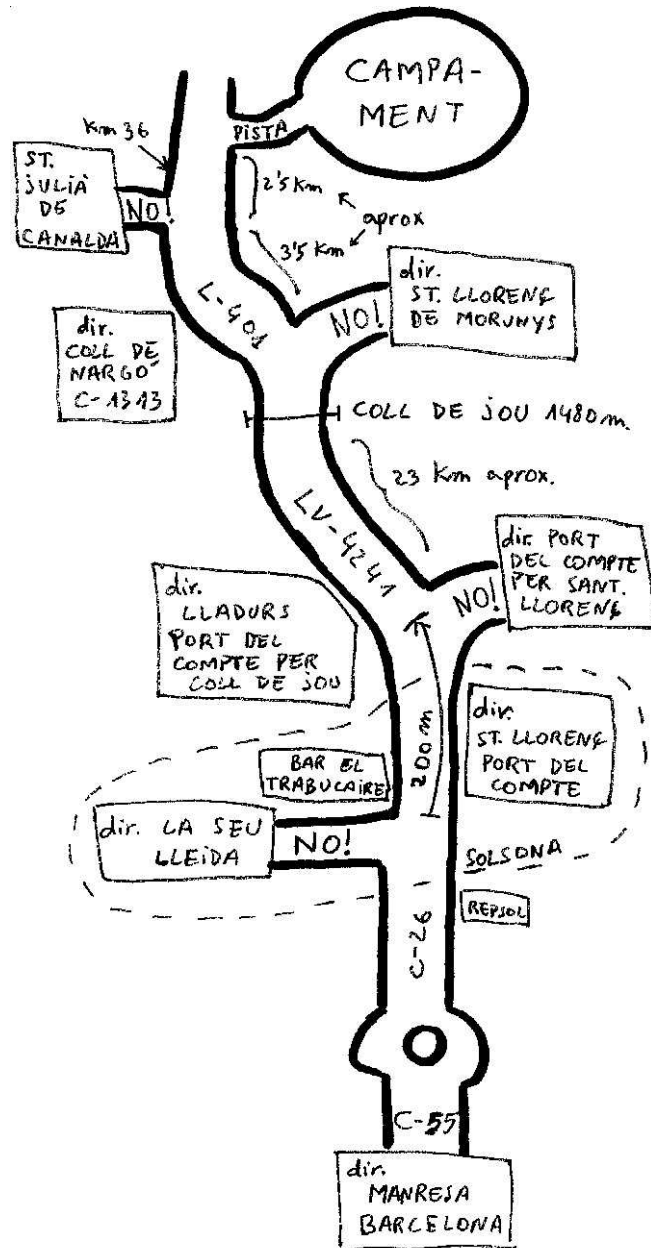 CAMPA-
MENT
PISTA
Km 36
ST.
JULIÀ
DE
CANALDA
NO!
2'5 Km
aprox
3'5 Km
L-401
dir.
ST. LLORENÇ
DE MORUNYS
NO!
dir.
COLL DE
NARGÓ
C-1313
COLL DE JOU 1480m.
23 Km aprox.
LV-4241
dir. PORT
DEL COMPTE
PER SANT.
LLORENÇ
NO!
dir.
LLADURS
PORT DEL
COMPTE PER
COLL DE JOU
200m
dir.
ST. LLORENÇ
PORT DEL
COMPTE
BAR EL
TRABUCAIRE
dir. LA SEU
LLEIDA
NO!
SOLSONA
REPSOL
C-26
C-55
dir.
MANRESA
BARCELONA